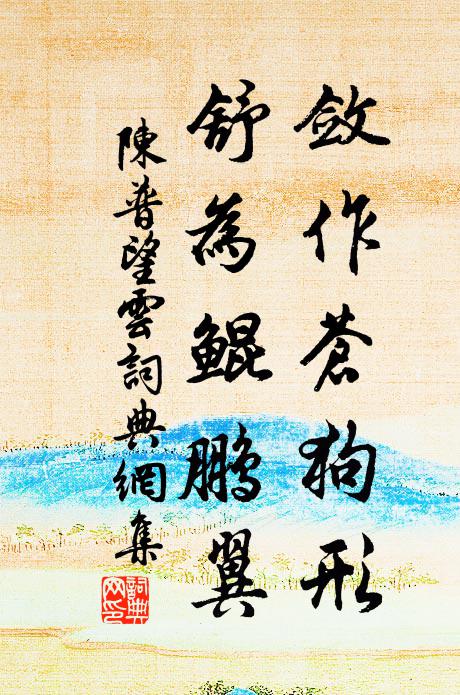 斂作蒼狗形
舒為鯤鵬翼
陳普望雲詞典網集
詞典網印